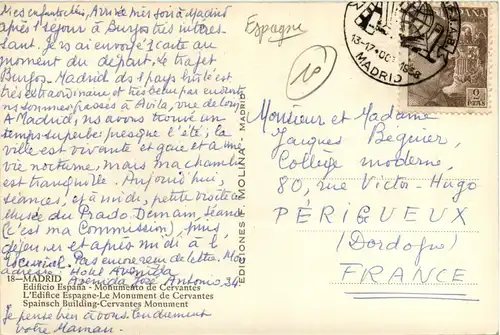 Mes enfants chéris, Arrivée hier soir à Madrid
après 1 séjour à Burgos très intéres-
sant. Je vs ai envoyé 1 carte au
moment du départ. Le trajet
Burgos-Madrid ds 1 pays
très extraordinaire et très beau par endroits
ns sommes passés à Avila, vue de loin
A Madrid, ns avons trouvé un
temps superbe, presque l'été; la
ville est vivante et gaie et a une
vie nocturne, mais ma chambre
est tranquille. Aujourd'hui,
séances, et à midi, petite visite au
Musée du Prado. Demain, séance
(c'est ma Commission), puis
déjeuner et après midi à l'
Escurial. Pas encore reçu de lettre. Mon
adresse: Hotel Avenida
Avenida José Antonio, 34.
18—MADRID
Edificio España - Monumento de Cervantes
L'Edifice Espagne-Le Monument de Cervantes
Spainsch Building-Cervantes Monument
Je pense bien à vous tendrement
votre Maman
EDICIONES F. MOLINA - MADRID
Espagne
10
13-17 OCT 1958
MADRID
2
PTAS
Monsieur et Madame
Jacques Béquier,
Collège moderne,
80, rue Victor-Hugo
PÉRIGUEUX
(Dordogne)
FRANCE